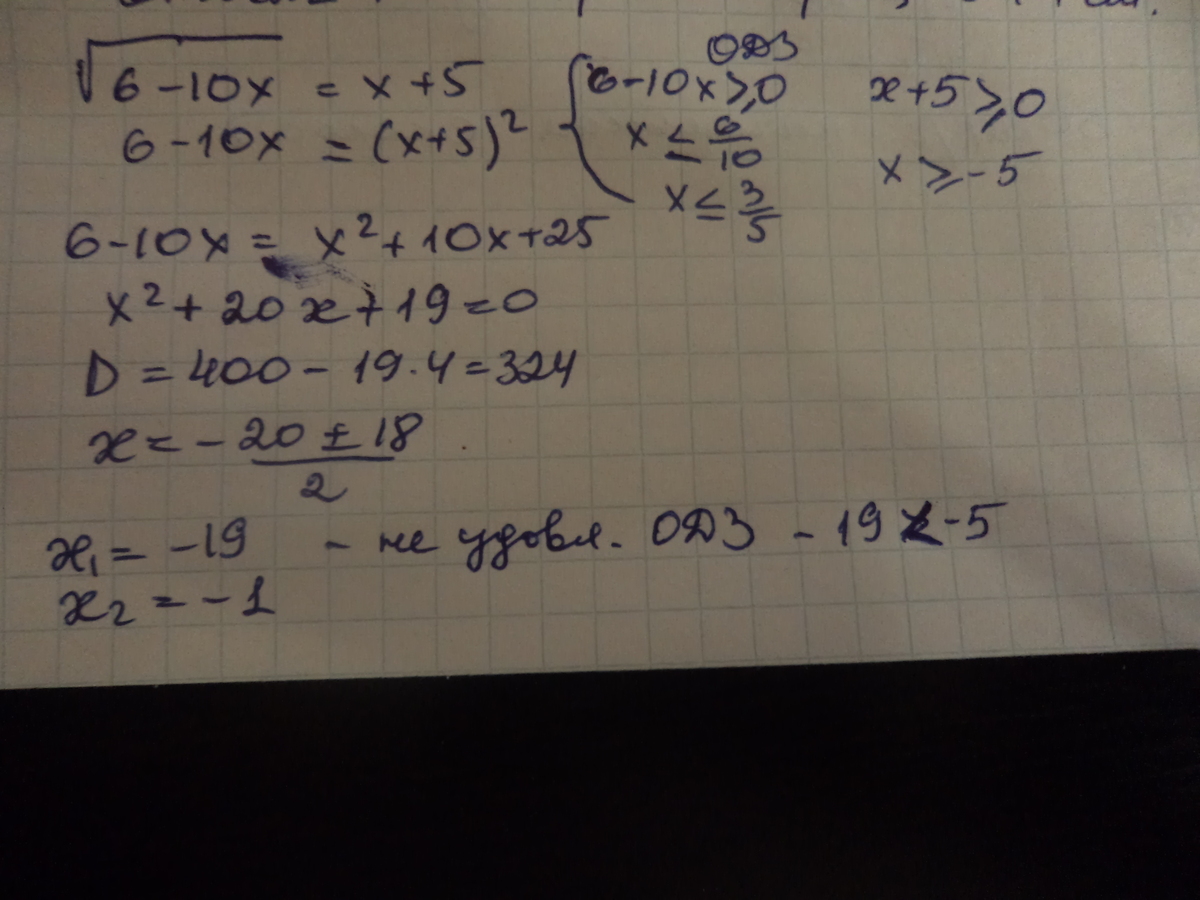 √6-10x = x+5
ОДЗ
6-10x = (x+5)²
{ 6-10x ≥ 0
x ≤ 6/10
x ≤ 3/5
x+5 ≥ 0
x ≥ -5
6-10x = x²+10x+25
x²+20x+19=0
D = 400 - 19·4 = 324
x = -20 ± 18 / 2
x₁ = -19 - не удовл. ОДЗ -19 < -5
x₂ = -1